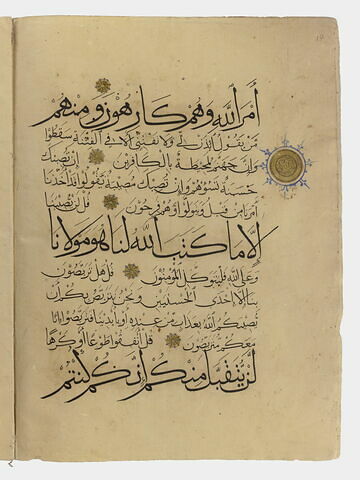 أَمْرُ اللَّهِ وَهُمْ كَارِهُونَ وَمِنْهُم
مَّن يَقُولُ ائْذَن لِّي وَلَا تَفْتِنِّي أَلَا فِي الْفِتْنَةِ سَقَطُوا
وَإِنَّ جَهَنَّمَ لَمُحِيطَةٌ بِالْكَافِرِينَ إِن تُصِبْكَ
حَسَنَةٌ تَسُؤْهُمْ وَإِن تُصِبْكَ مُصِيبَةٌ يَقُولُوا قَدْ أَخَذْنَا
أَمْرَنَا مِن قَبْلُ وَيَتَوَلَّوا وَّهُمْ فَرِحُونَ قُل لَّن يُصِيبَنَا
إِلَّا مَا كَتَبَ اللَّهُ لَنَا هُوَ مَوْلَانَا
وَعَلَى اللَّهِ فَلْيَتَوَكَّلِ الْمُؤْمِنُونَ قُلْ هَلْ تَرَبَّصُونَ
بِنَا إِلَّا إِحْدَى الْحُسْنَيَيْنِ وَنَحْنُ نَتَرَبَّصُ بِكُمْ أَن
يُصِيبَكُمُ اللَّهُ بِعَذَابٍ مِّنْ عِندِهِ أَوْ بِأَيْدِينَا فَتَرَبَّصُوا إِنَّا
مَعَكُم مُّتَرَبِّصُونَ قُلْ أَنفِقُوا طَوْعًا أَوْ كَرْهًا
لَّن يُتَقَبَّلَ مِنكُمْ إِنَّكُمْ كُنتُمْ